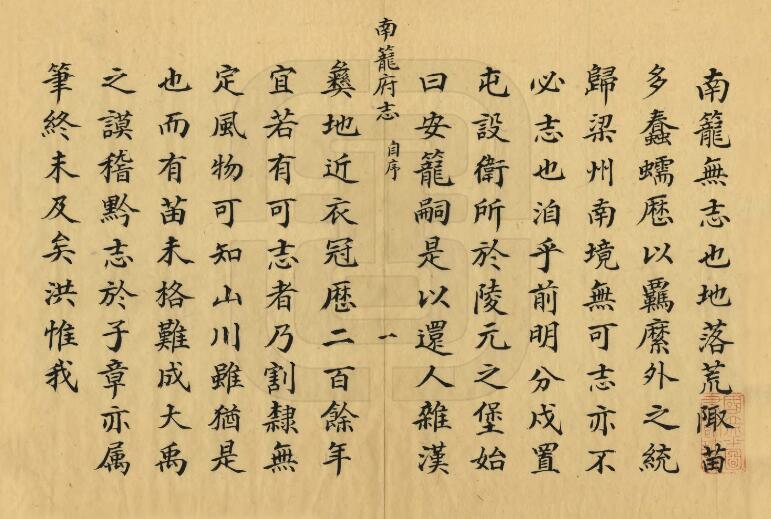 南籠無志也地落荒陬苗
多蠢蠕歷以羈縻外之統
歸梁州南境無可志亦不
必志也洎乎前明分戍置
屯設衛所於陵元之堡始
曰安籠嗣是以還人雜漢
南籠府志 自序 一
彝地近衣冠歷二百餘年
宜若有可志者乃割隸無
定風物可知山川雖猶是
也而有苗未格難成大禹
之謨稽黔志於子章亦属
筆終未及矣洪惟我